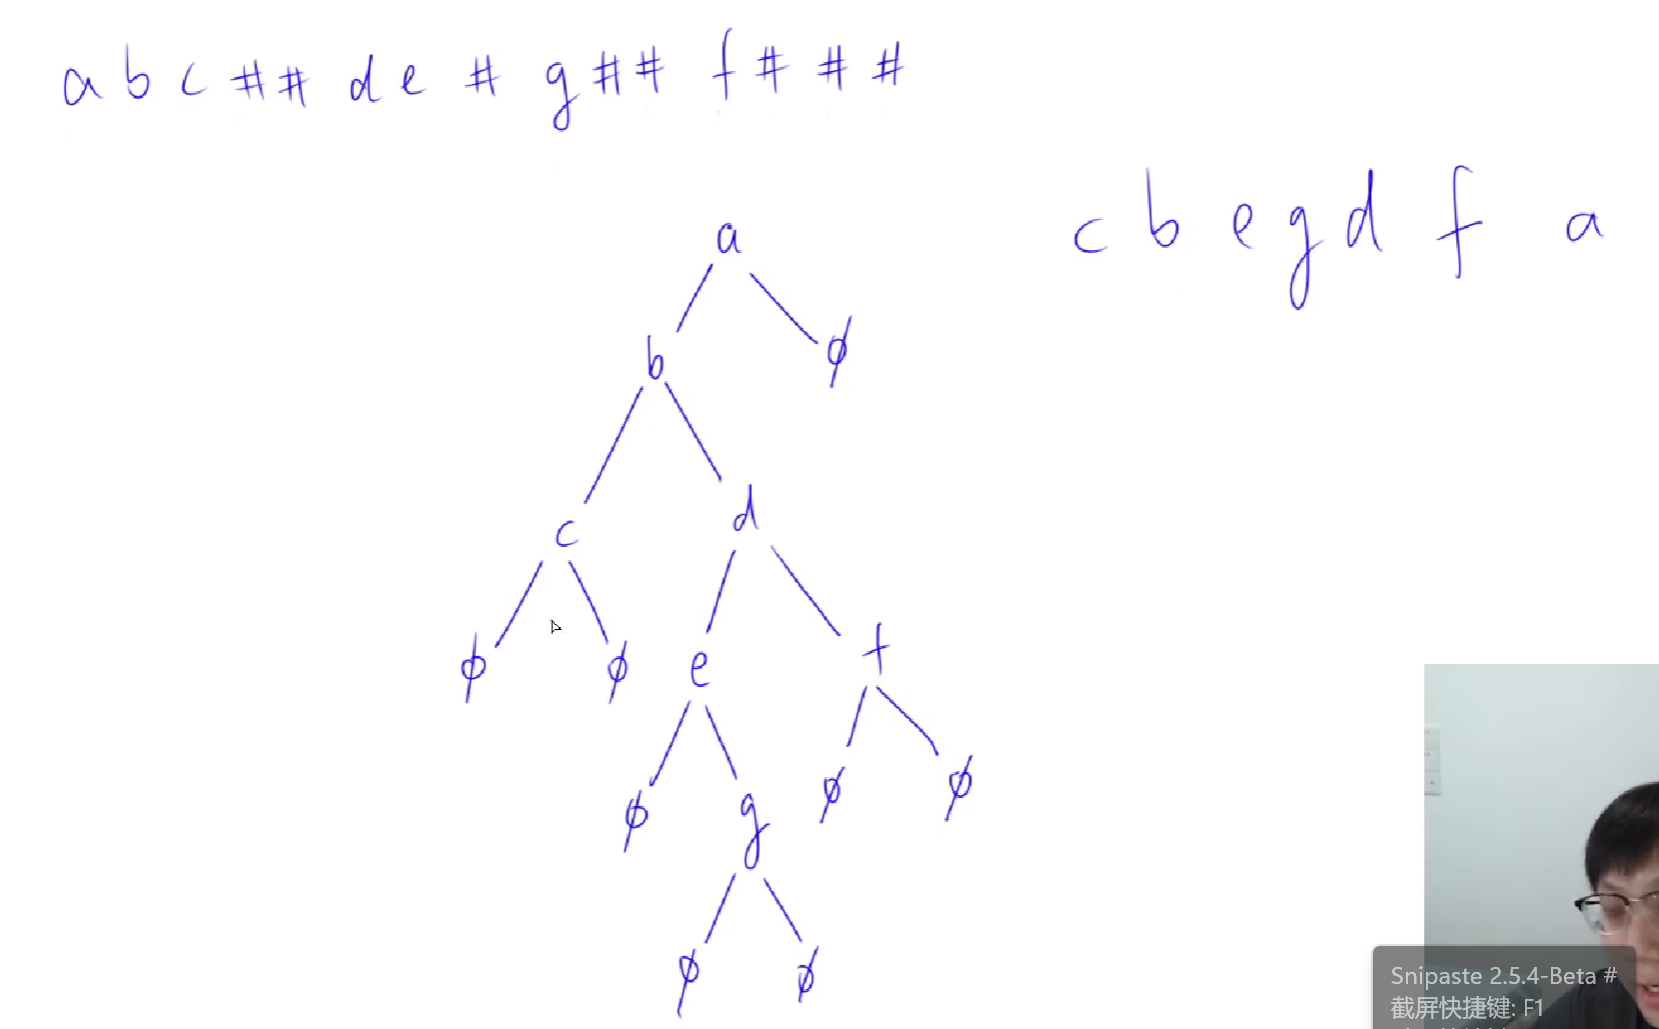 a b c # # d e # g # # f # # #
c b e g d f a
a
b ϕ
c d
ϕ ϕ e f
ϕ g ϕ ϕ
ϕ ϕ
Snipaste 2.5.4-Beta #
截屏快捷键: F1